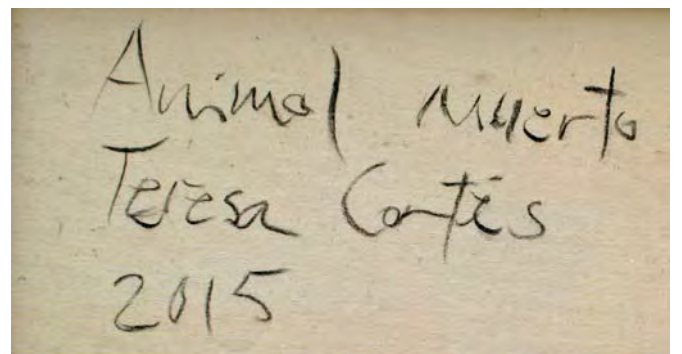 Animal Muerto
Teresa Cortés
2015